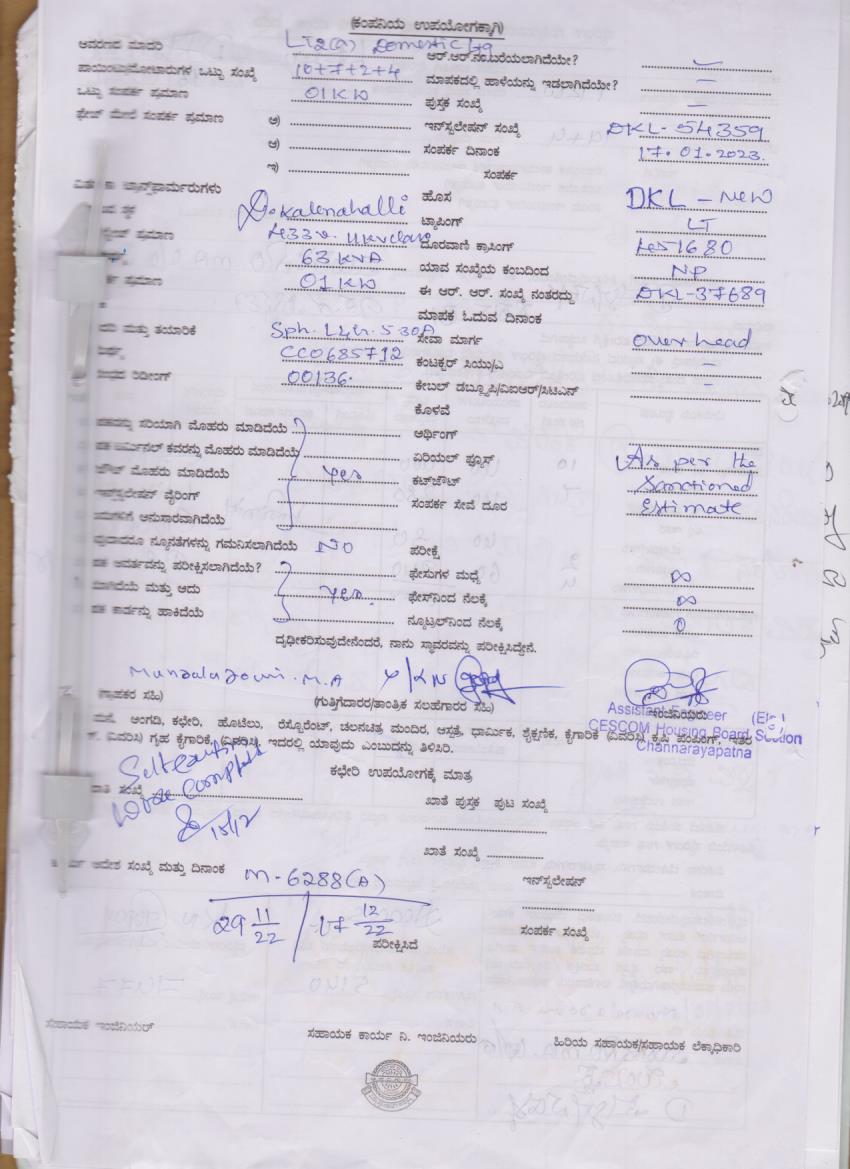 (ಕಂಪನಿಯ ಉಪಯೋಗಕ್ಕಾಗಿ)
ಆವರಣದ ಮಾದರಿ LT2(a) Domestic Ltg ಆರ್.ಆರ್.ನಂ.ಬರೆಯಲಾಗಿದೆಯೇ?
ಪಾಯಿಂಟು/ಮೋಟಾರುಗಳ ಒಟ್ಟು ಸಂಖ್ಯೆ 10+7+2+4 ಮಾಪಕದಲ್ಲಿ ಹಾಳೆಯನ್ನು ಇಡಲಾಗಿದೆಯೇ? –
ಒಟ್ಟು ಸಂಪರ್ಕ ಪ್ರಮಾಣ 01KW ಪುಸ್ತಕ ಸಂಖ್ಯೆ –
ಫೇಜ್ ಮೇಲೆ ಸಂಪರ್ಕ ಪ್ರಮಾಣ ಅ) ಇನ್‌ಸ್ಟಲೇಷನ್ ಸಂಖ್ಯೆ DKL-54359
ಆ) ಸಂಪರ್ಕ ದಿನಾಂಕ 17.01.2023.
ಇ) ಸಂಪರ್ಕ
ಟ್ರಾನ್ಸ್‌ಫಾರ್ಮರುಗಳು ಹೊಸ DKL – New
ಸ್ಥಳ D.kalenahalli ಟ್ಯಾಪಿಂಗ್ LT
ಪ್ರಮಾಣ 433v. 11kv class ದೂರವಾಣಿ ಕ್ರಾಸಿಂಗ್ 1680
63 KVA ಯಾವ ಸಂಖ್ಯೆಯ ಕಂಬದಿಂದ NP
ಪ್ರಮಾಣ 01KW ಈ ಆರ್. ಆರ್. ಸಂಖ್ಯೆ ನಂತರದ್ದು DKL-37689
ಮಾಪಕ ಓದುವ ದಿನಾಂಕ
ಮತ್ತು ತಯಾರಿಕೆ Sph. L&n. 5-30A ಸೇವಾ ಮಾರ್ಗ over head
CC0685712 ಕಂಟಕ್ಟರ್ ಸಿಯು/ಎ –
ರೀಡಿಂಗ್ 00136. ಕೇಬಲ್ ಡಬ್ಲ್ಯೂಪಿ/ವಿಐಆರ್/ಸಿಟಿಎನ್ –
ಕೊಳವೆ
ಸರಿಯಾಗಿ ಮೊಹರು ಮಾಡಿದೆಯೆ ಅರ್ಥಿಂಗ್
ಟರ್ಮಿನಲ್ ಕವರನ್ನು ಮೊಹರು ಮಾಡಿದೆಯೆ ಏರಿಯಲ್ ಫ್ಯೂಸ್ As per the
ಮೊಹರು ಮಾಡಿದೆಯೆ yes ಕಟ್‌ಔಟ್ Sanctioned
ಇನ್‌ಸ್ಟಲೇಷನ್ ವೈರಿಂಗ್ ಸಂಪರ್ಕ ಸೇವೆ ದೂರ Estimate
ಅನುಸಾರವಾಗಿದೆಯೆ
ನ್ಯೂನತೆಗಳನ್ನು ಗಮನಿಸಲಾಗಿದೆಯೆ NO ಪರೀಕ್ಷೆ
ಆವರ್ತವನ್ನು ಪರೀಕ್ಷಿಸಲಾಗಿದೆಯೆ? ಫೇಸುಗಳ ಮಧ್ಯೆ ∞
ಮಾಡಿದೆಯೆ ಮತ್ತು ಅದು yes. ಫೇಸ್‌ನಿಂದ ನೆಲಕ್ಕೆ ∞
ಕಾರ್ಡನ್ನು ಹಾಕಿದೆಯೆ ನ್ಯೂಟ್ರಲ್‌ನಿಂದ ನೆಲಕ್ಕೆ 0
ದೃಢೀಕರಿಸುವುದೇನೆಂದರೆ, ನಾನು ಸ್ಥಾವರವನ್ನು ಪರೀಕ್ಷಿಸಿದ್ದೇನೆ.
Munjalagowri. M.A
(ಗ್ರಾಹಕರ ಸಹಿ) (ಗುತ್ತಿಗೆದಾರರ/ತಾಂತ್ರಿಕ ಸಲಹೆಗಾರರ ಸಹಿ) ಇಂಜಿನಿಯರು
Assistant Engineer (Ele)
CESCOM Housing Board, Section
Channarayapatna
ಮನೆ, ಅಂಗಡಿ, ಕಛೇರಿ, ಹೊಟೆಲು, ರೆಸ್ಟೋರೆಂಟ್, ಚಲನಚಿತ್ರ ಮಂದಿರ, ಆಸ್ಪತ್ರೆ, ಧಾರ್ಮಿಕ, ಶೈಕ್ಷಣಿಕ, ಕೈಗಾರಿಕೆ (ವಿವರಿಸಿ) ಕೃಷಿ ಪಂಪಿಂಗ್, ಇತರ
(ವಿವರಿಸಿ) ಗೃಹ ಕೈಗಾರಿಕೆ, (ವಿವರಿಸಿ), ಇದರಲ್ಲಿ ಯಾವುದು ಎಂಬುದನ್ನು ತಿಳಿಸಿರಿ.
ಕಛೇರಿ ಉಪಯೋಗಕ್ಕೆ ಮಾತ್ರ
ಸಂಖ್ಯೆ ಖಾತೆ ಪುಸ್ತಕ ಪುಟ ಸಂಖ್ಯೆ
15/12
ಖಾತೆ ಸಂಖ್ಯೆ
ಆದೇಶ ಸಂಖ್ಯೆ ಮತ್ತು ದಿನಾಂಕ M-6288(A) ಇನ್‌ಸ್ಟಲೇಷನ್
29 11/22 / 17 12/22 ಸಂಪರ್ಕ ಸಂಖ್ಯೆ
ಪರೀಕ್ಷಿಸಿದೆ
ಸಹಾಯಕ ಇಂಜಿನಿಯರ್ ಸಹಾಯಕ ಕಾರ್ಯ ನಿ. ಇಂಜಿನಿಯರು ಹಿರಿಯ ಸಹಾಯಕ/ಸಹಾಯಕ ಲೆಕ್ಕಾಧಿಕಾರಿ